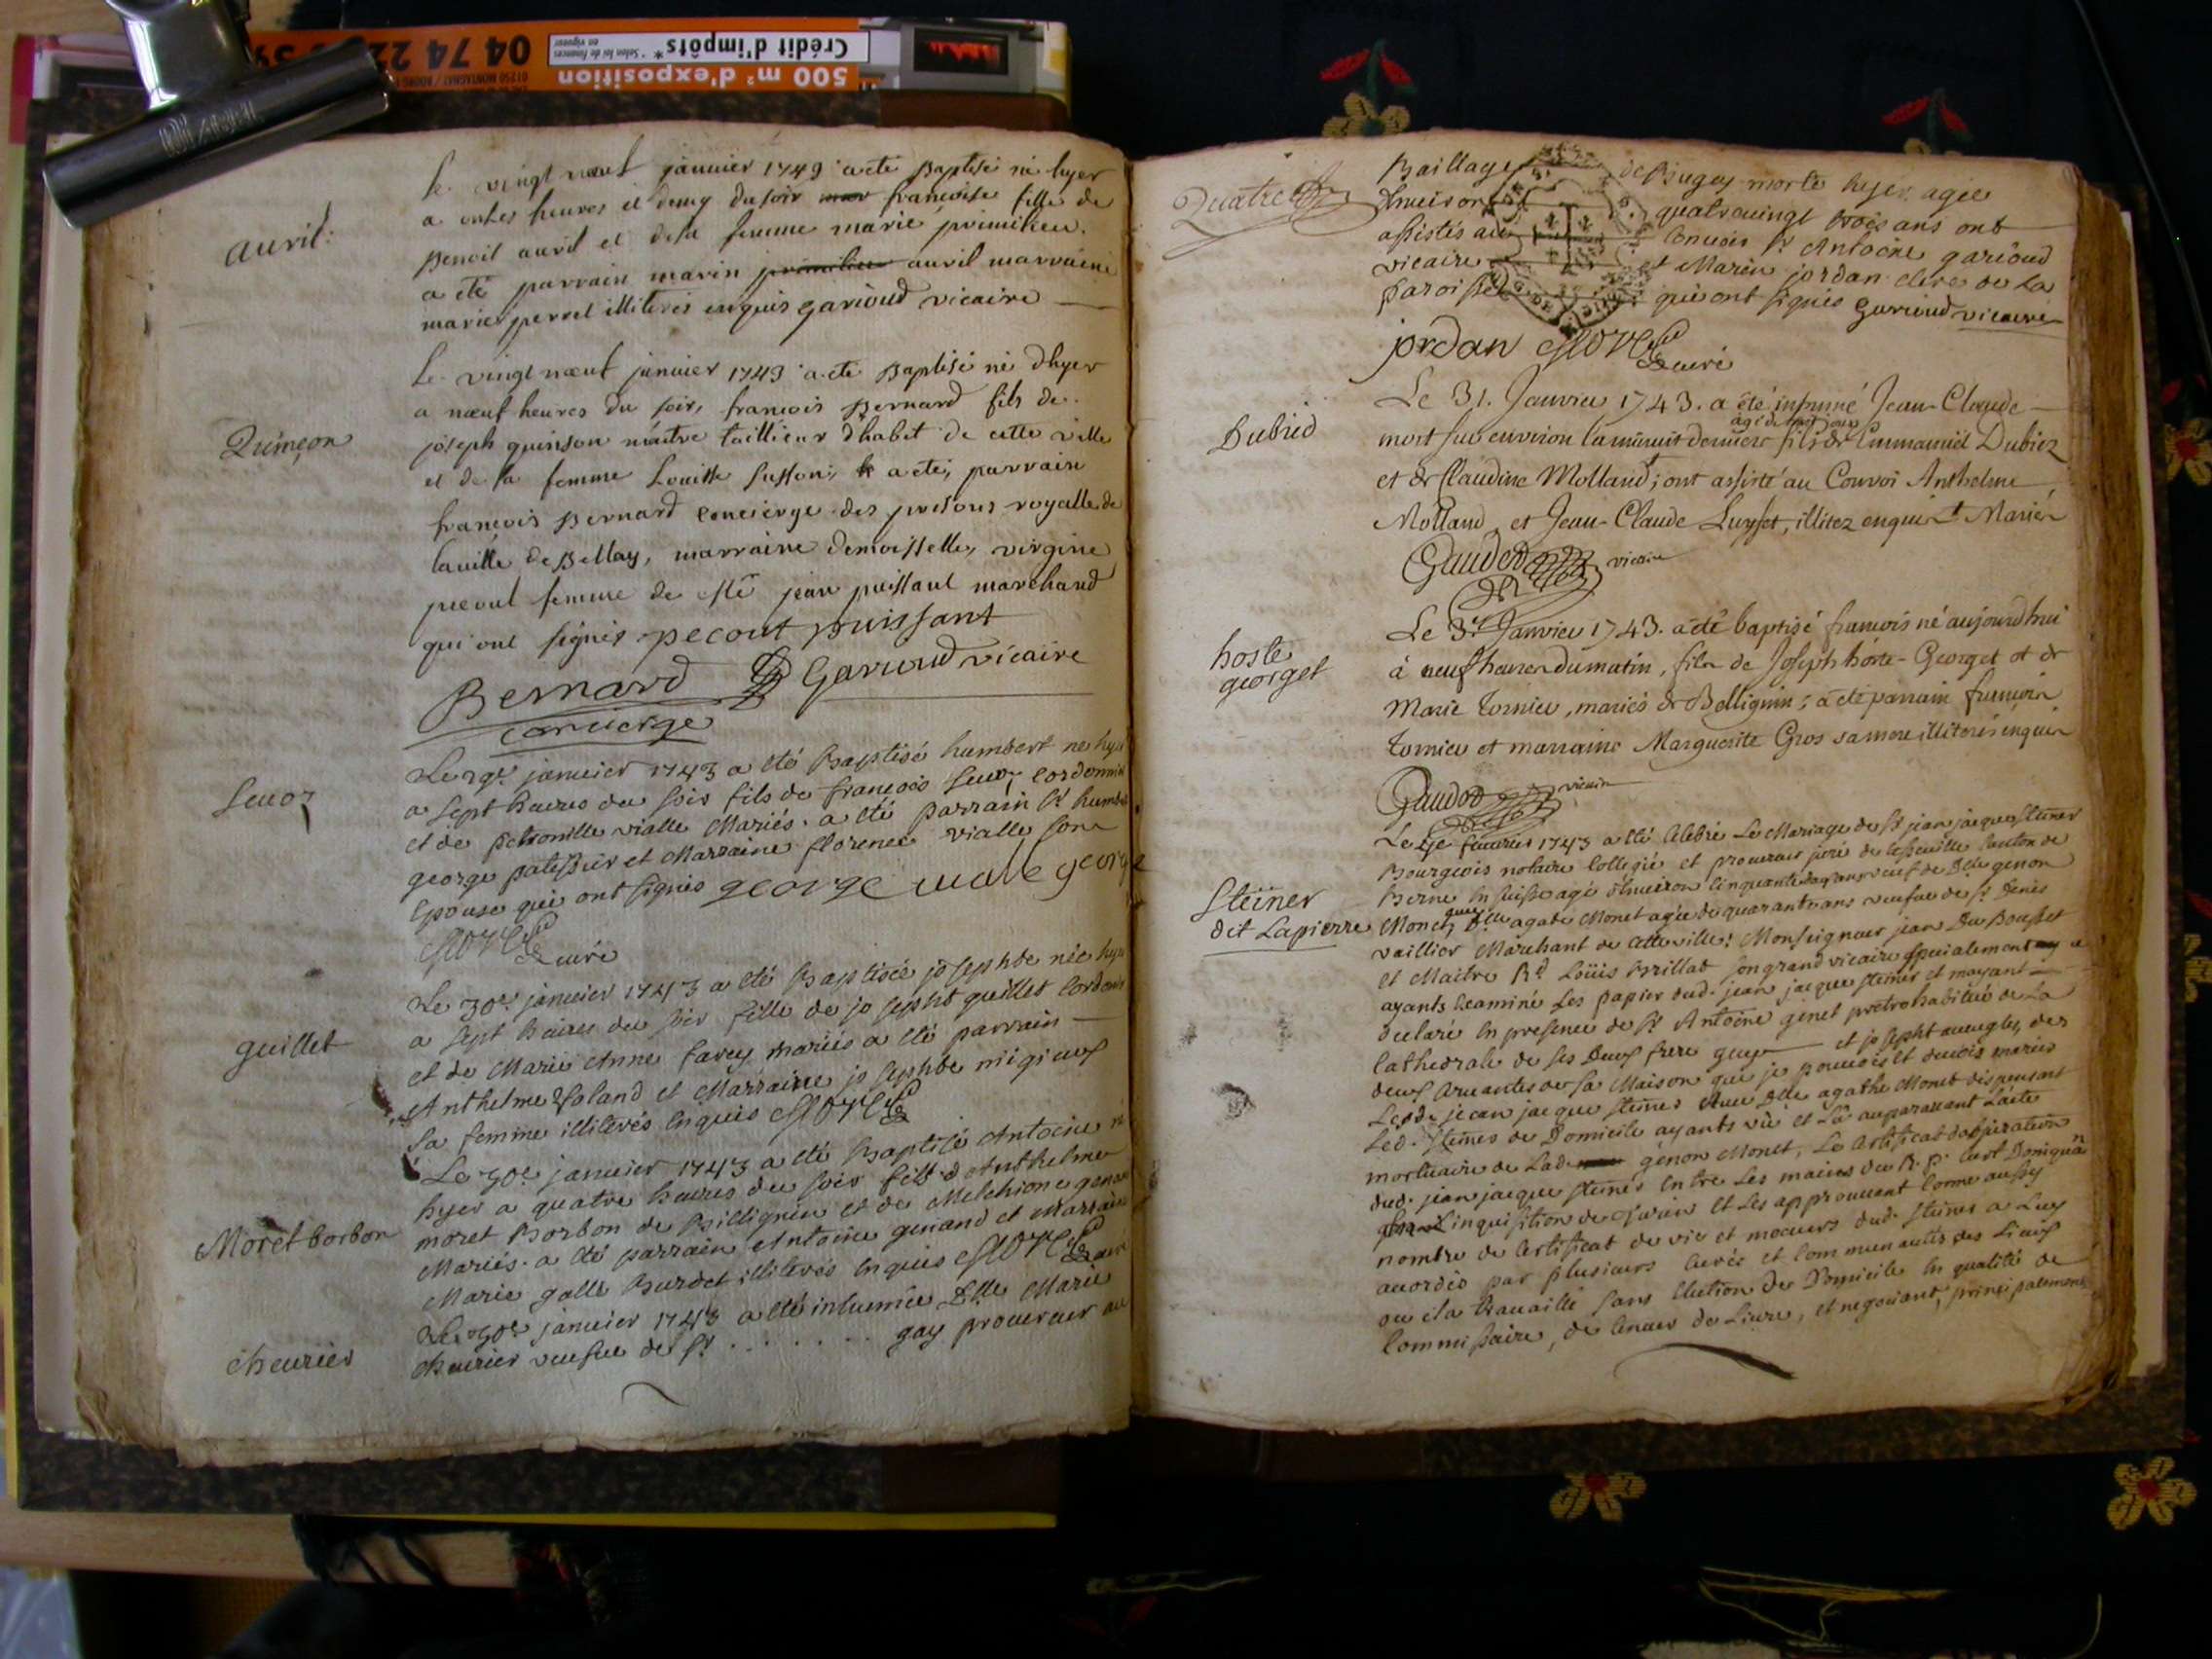 04 74 22
Crédit d'impôts*
*Selon loi de finances
en vigueur
500 m² d'exposition
01250 MONTAGNAT
auril:
le vingt nœuf janvier 1743 a eté Baptisé né hyer
a onhes heures et demy du soir francoise fille de
Benoit auril et de sa femme marie primilieu.
a eté parrain marin auril marraine
marie perret illiterés enquis garioud vicaire
Quinçon
le vingt nœuf janvier 1743 a eté Baptisé né dhyer
a nœuf heures du soir, francois Bernard fils de
joseph quinson maitre taillieur dhabit de cette ville
et de sa femme Louisse susson, a eté, parrain
francois Bernard concierge des prisons royalle de
laville de Bellay, marraine demoisselle, virginie
pecout femme de jean puissant marchand
qui ont signés pecout puissant
Bernard Garioud vicaire
concierge
Seuoz
Le 29e janvier 1743 a eté Baptisé humbert ne hyer
a sept heures du soir fils de françois Seuoz cordonnier
et de petronille vialle Mariés. a eté parrain sr humbe
george patissier et Marraine florence vialle son
Epouse qui ont signés george vialle george
curé
guillet
Le 30e janvier 1743 a eté Baptisée josephte née hyer
a sept heures du soir fille de josepht guillet cordon
et de Marie Anne favey mariés a eté parrain
Anthelme Valand et Marraine josephte migieux
sa femme illiterés Enquis
Moret borbon
Le 30e janvier 1743 a eté Baptisé Antoine né
hyer a quatre heures du soir fils d'Anthelme
moret Borbon de Billignin et de Melchione genan
Mariés. a eté parrain Antoine genand et Marraine
Marie galle Burdet illiterés Enquis
cheurier
Le 30e janvier 1743 a eté inhumée Dlle Marie
cheurier veufue de sr . . . . . . . gay procureur au
Quatre
Baillage de Bugey morte hyer agée
dhenviron quatreuingt trois ans ont
assistés au conuois sr Antoine garioud
vicaire et Marin jordan clerc de la
paroisse qui ont signés Garioud vicaire
jordan
curé
Dubied
Le 31. Janvier 1743. a été inhumé Jean-Claude
agé de huit jours
mort sur environ la minuit dernière fils de Emmanüel Dubiez
et de Claudine Molland; ont assisté au Convoi Anthelme
Molland, et Jean-Claude Luysset, illitez enquis
Gaudet vicaire
hoste
georget
Le 31 Janvier 1743. a été baptisé francois né aujourdhui
à neuf heures du matin, fils de Joseph hoste-Georget et de
Marie Tornieu, mariés de Bellignin; a été parrain francois
Tornieu et marraine Marguerite Gros sa mere illiterés enquis
Gaudet vicaire
Steiner
dit Lapierre
Le 4e feurier 1743 a eté Celebré Le Mariage de sr jean jaque steiner
Bourgeois notaire Collegié et procureur juré de Canton de
Berne En suisse agé denuiron Cinquante veuf de Dlle genon
Monet, auec Dlle agate Monet agée de quarante ans veufue de sr Denis
vaillier Marchant de cette ville: Monseigneur jean Du Bousset
et Maitre Rd Loüis Brillat son grand vicaire spécialement
ayants Examiné Les papier dud. jean jaque steiner et mayant
Declaré En presence de sr Antoine genet pretre habitué de La
Cathedrale de ses Deux frere guy et josepht aueugle, des
deux seruantes de sa Maison que je pouuois et deuois marier
Led. jean jaque steiner Auec Dlle agathe Monet dispensant
Led. steiner de Domicile ayants vû et Lû auparauant Lacte
mortuaire de Lad. genon Monet, Le Certificat dabjuration
dud. jean jaque steiner Entre Les mains du R. p.
inquisition de Turin et Les approuuant Comme aussy
nombre de Certificat de vie et moeurs dud. steiner a Luy
acordés par plusieurs Curés et Communautés des Lieux
ou il a trauaillé sans Election de Domicile En qualité de
Commissaire, de teneur de Liure, et negociant, principalement